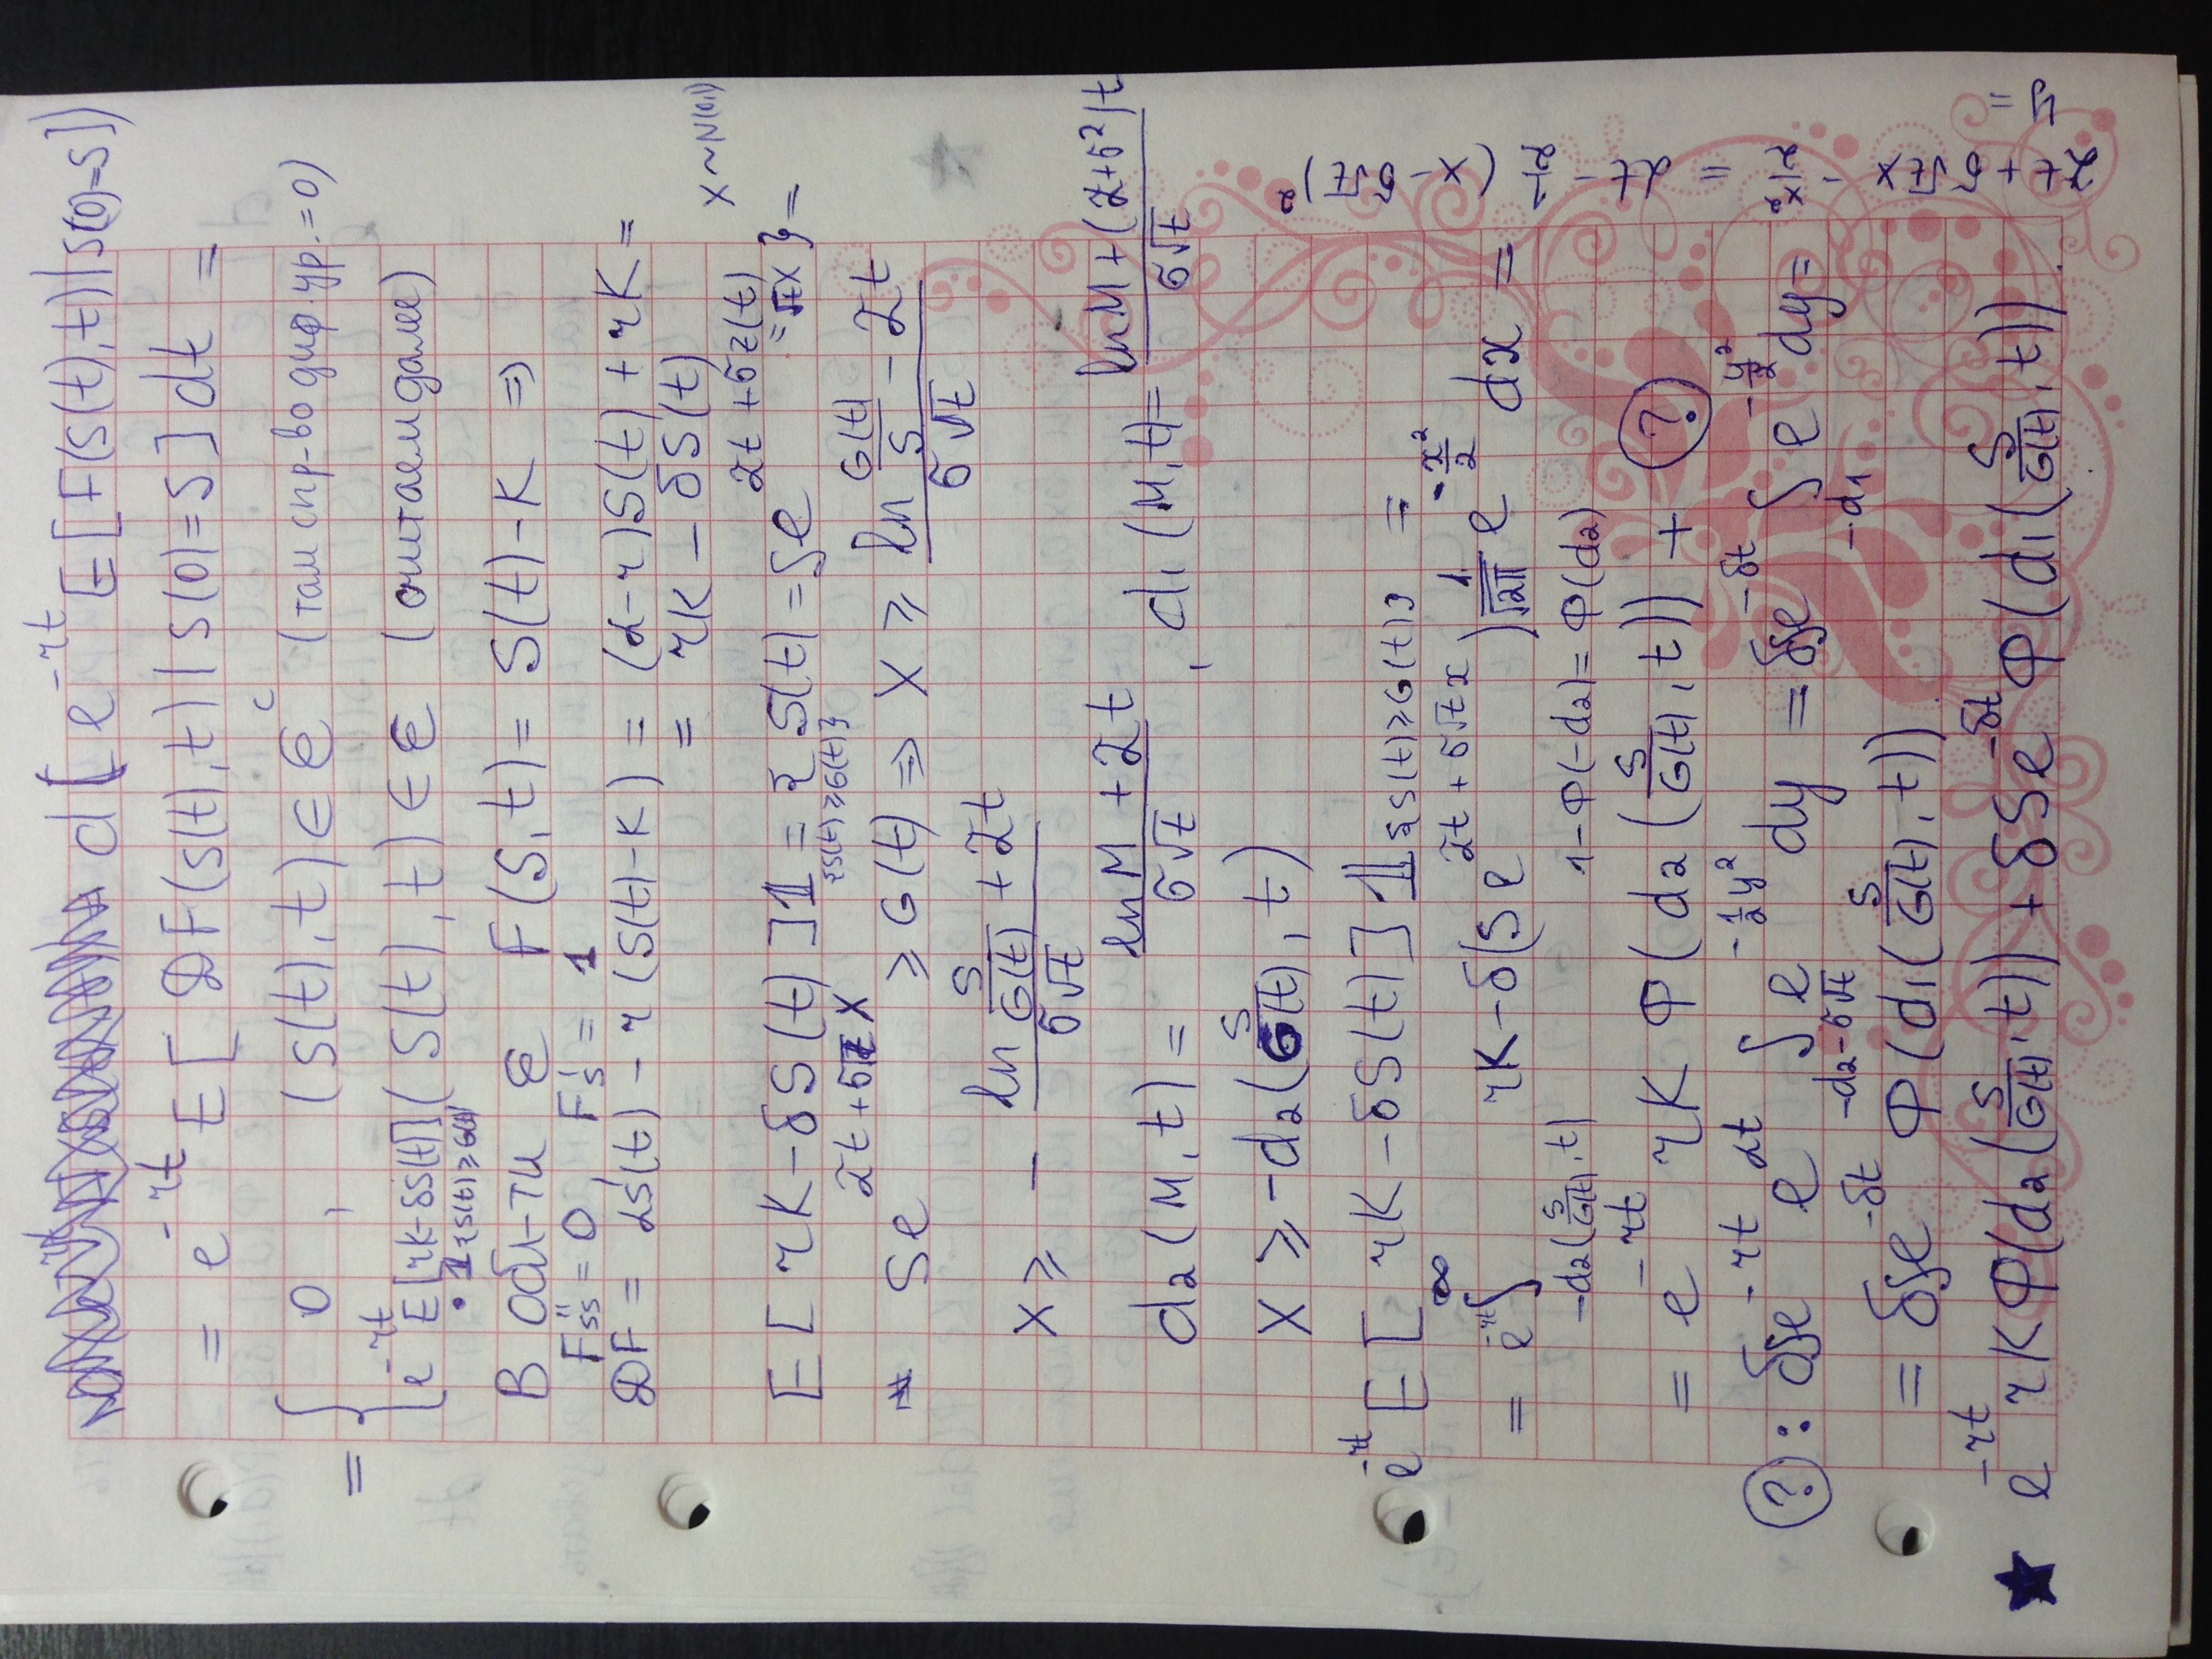 d(e^{-rt} E[F(S(t),t)|S(0)=S])
= e^{-rt} E[𝒟F(S(t),t)|S(0)=S]dt =
= { 0, (S(t),t)∈𝒞^c (там спр-во диф.ур.=0)
e^{-rt} E[rK-δS(t)] (S(t),t)∈𝒞 (считаем далее)
· 𝟙{S(t)≥G(t)}
В обл-ти 𝒞 F(S,t) = S(t)-K ⇒
F''_{SS} = 0 F'_S = 1
𝒟F = αS(t) - r(S(t)-K) = (α-r)S(t) + rK =
= rK - δS(t)
X~N(0,1)
E[rK-δS(t)]𝟙_{{S(t)≥G(t)}} = {S(t) = Se^{αt+σz(t)} =√tX} =
Se^{αt+σ√tX} ≥ G(t) ⇒ X ≥ \frac{ln \frac{G(t)}{S} - αt}{σ√t}
X ≥ - \frac{ln \frac{S}{G(t)} + αt}{σ√t}
d2(M,t) = \frac{lnM + αt}{σ√t}, d1(M,t) = \frac{lnM + (α+σ²)t}{σ√t}
X ≥ -d2(\frac{S}{G(t)}, t)
e^{-rt} E[rK-δS(t)]𝟙{S(t)≥G(t)} =
= e^{-rt} ∫_{-d2(\frac{S}{G(t)},t)}^{∞} rK-δ(Se^{αt+σ√tx}) \frac{1}{√2π} e^{-\frac{x²}{2}} dx =
1-Φ(-d2)=Φ(d2)
= e^{-rt} rK Φ(d2(\frac{S}{G(t)},t)) + (?)
(?): δSe^{-rt} e^{αt} ∫_{-d2-σ√t} e^{-\frac{1}{2}y²} dy = δSe^{-δt} ∫_{-d1} e^{-\frac{y²}{2}} dy =
= δSe^{-δt} Φ(d1(\frac{S}{G(t)},t))
e^{-rt} rKΦ(d2(\frac{S}{G(t)},t)) + δSe^{-δt} Φ(d1(\frac{S}{G(t)},t)).
αt + σ√tx - \frac{x²}{2} = αt - \frac{1}{2}(x-σ√t)²